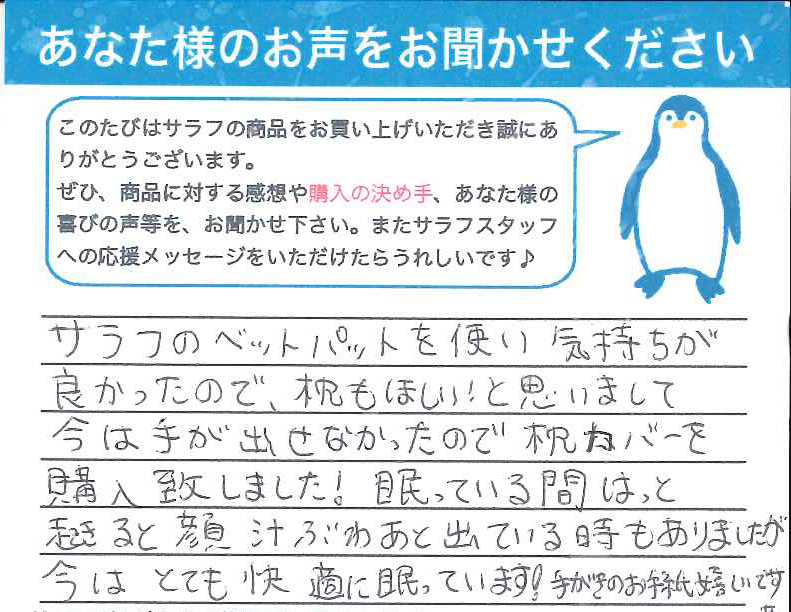 あなた様のお声をお聞かせください
このたびはサラフの商品をお買い上げいただき誠にあ
りがとうございます。
ぜひ、商品に対する感想や購入の決め手、あなた様の
喜びの声等を、お聞かせ下さい。またサラフスタッフ
への応援メッセージをいただけたらうれしいです♪
サラフのベットパットを使い 気持ちが
良かったので、枕もほしい!と思いまして
今は手が出せなかったので枕カバーを
購入致しました! 眠っている間はっと
起きると顔汁ぶわあと出ている時もありましたが
今はとても快適に眠っています!手がきのお手紙嬉しいです